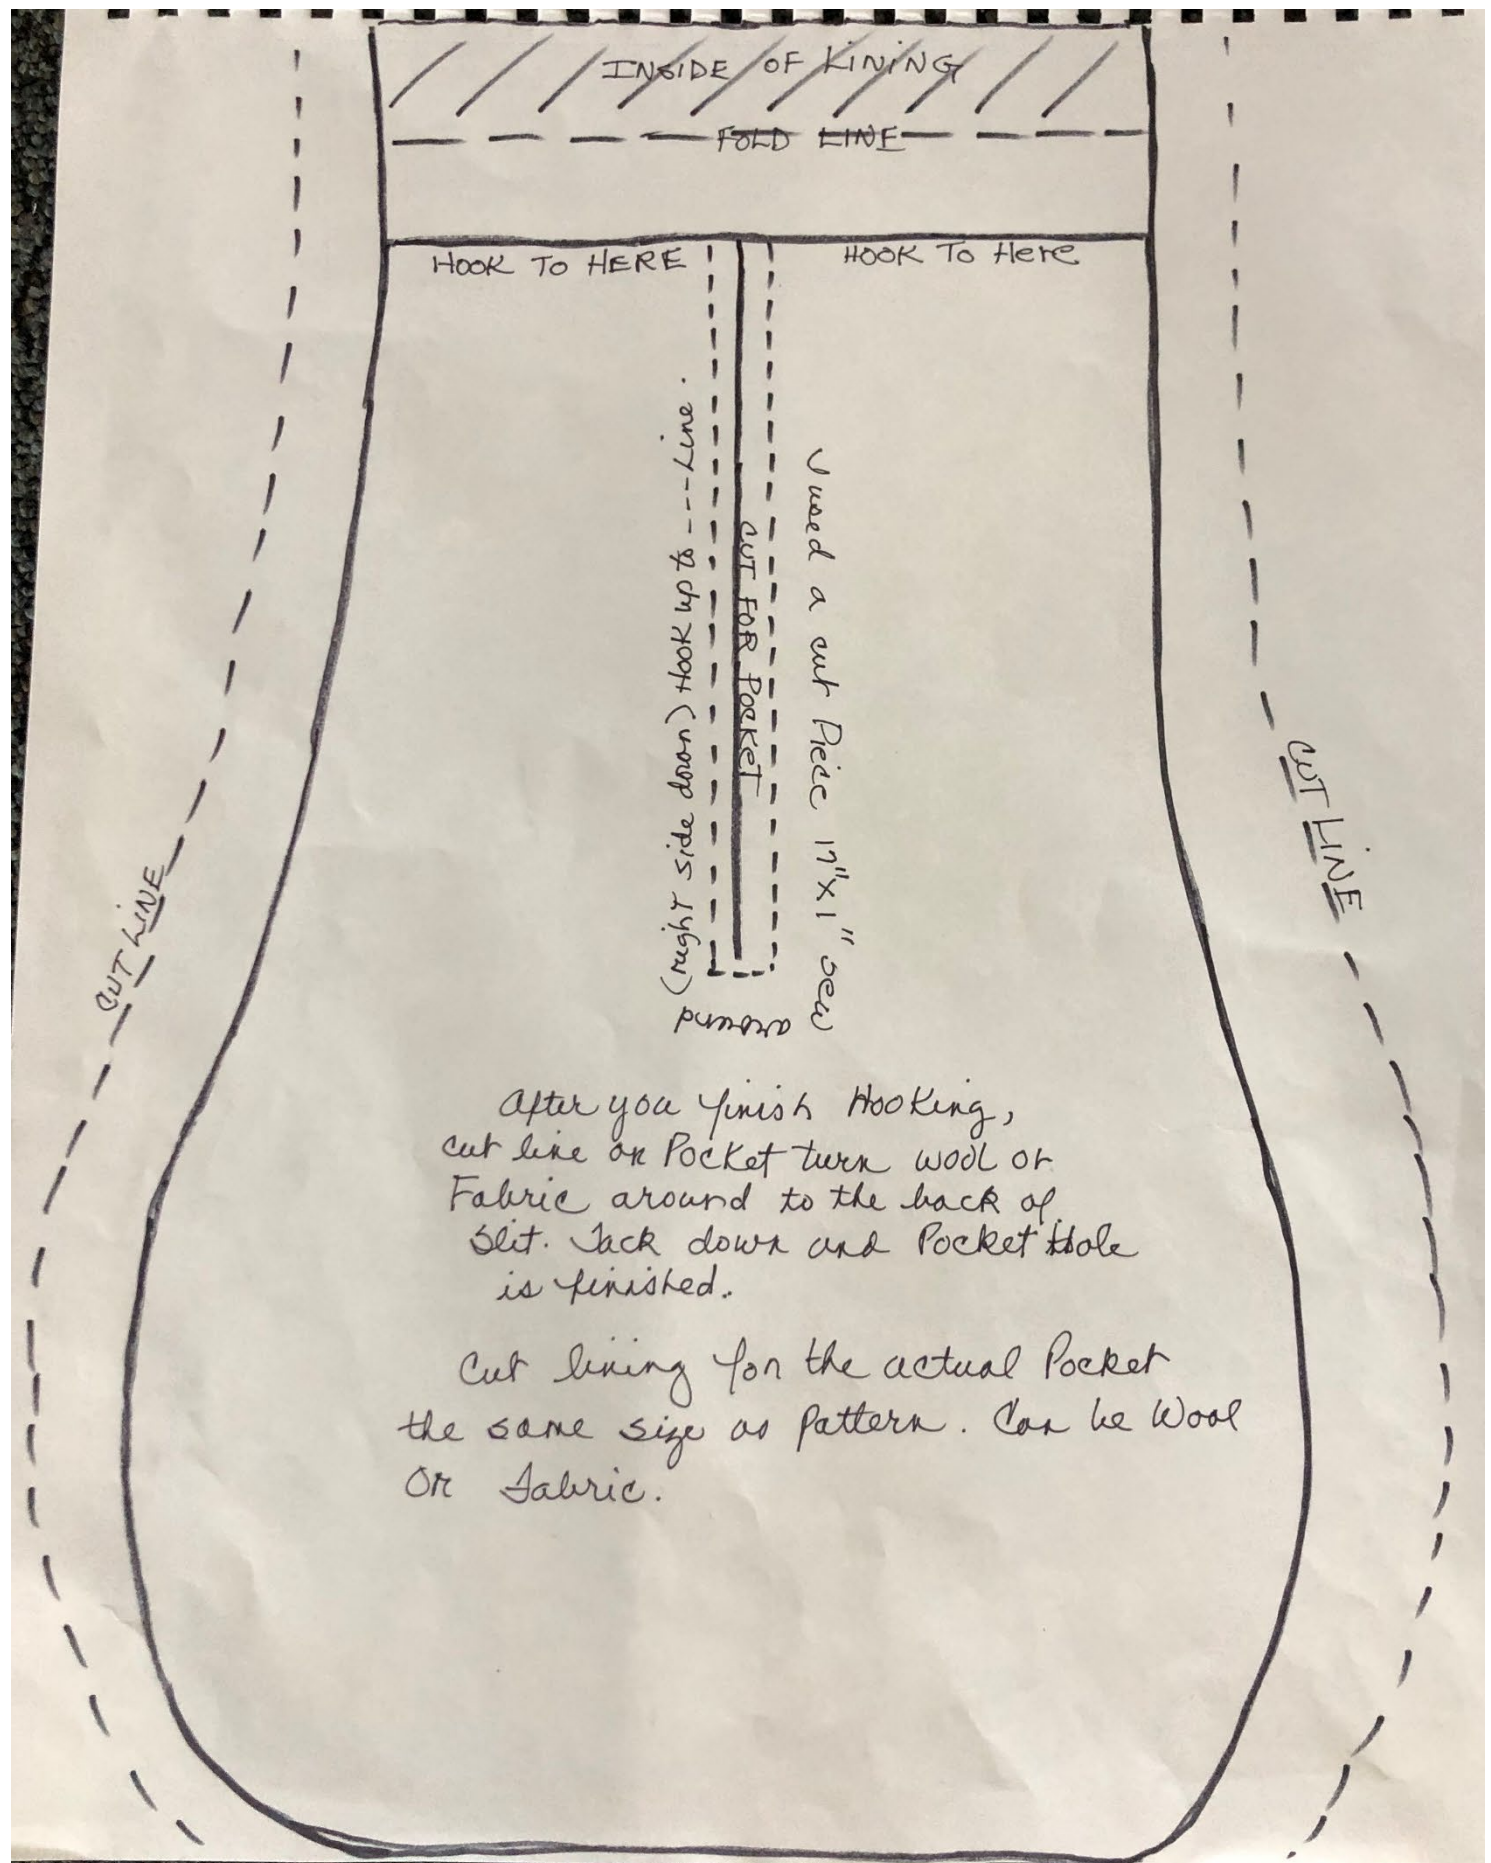 INSIDE OF LINING
FOLD LINE
HOOK TO HERE
HOOK TO Here
I used a cut Piece 17"x1" sew
around
(right side down) Hook up to ---Line.
CUT FOR POCKET
CUT LINE
CUT LINE
After you finish Hooking,
cut line on Pocket turn wool or
Fabric around to the back of
Slit. Tack down and Pocket Hole
is finished.
Cut lining for the actual Pocket
the same size as Pattern. Can be Wool
OR Fabric.